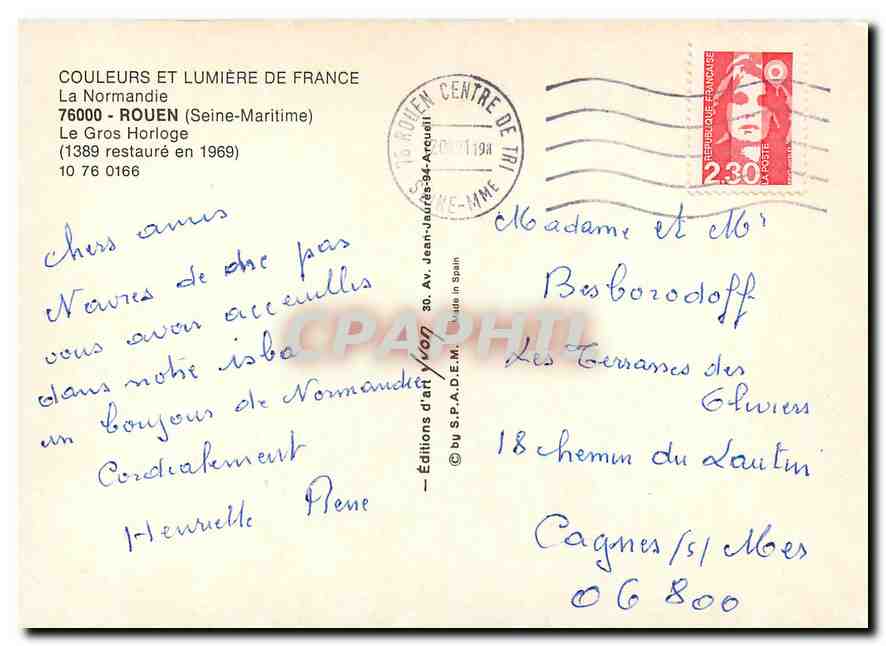 COULEURS ET LUMIÈRE DE FRANCE
La Normandie
76000 - ROUEN (Seine-Maritime)
Le Gros Horloge
(1389 restauré en 1969)
10 76 0166
Chers amis
Navrés de pas
vous avoir accueillis
dans notre isba
un bonjour de Normandie
Cordialement
Henriette René
— Éditions d'art yvon 30. Av. Jean-Jaurès-94-Arcueil
© by S.P.A.D.E.M. Made in Spain
76 ROUEN CENTRE DE TRI
SEINE-MME
RÉPUBLIQUE FRANÇAISE
2,30
LA POSTE
Madame et Mr
Besborodoff
Les Terrasses des
Oliviers
18 chemin du Lautin
Cagnes/s/Mer
06 800
CPAPHIL